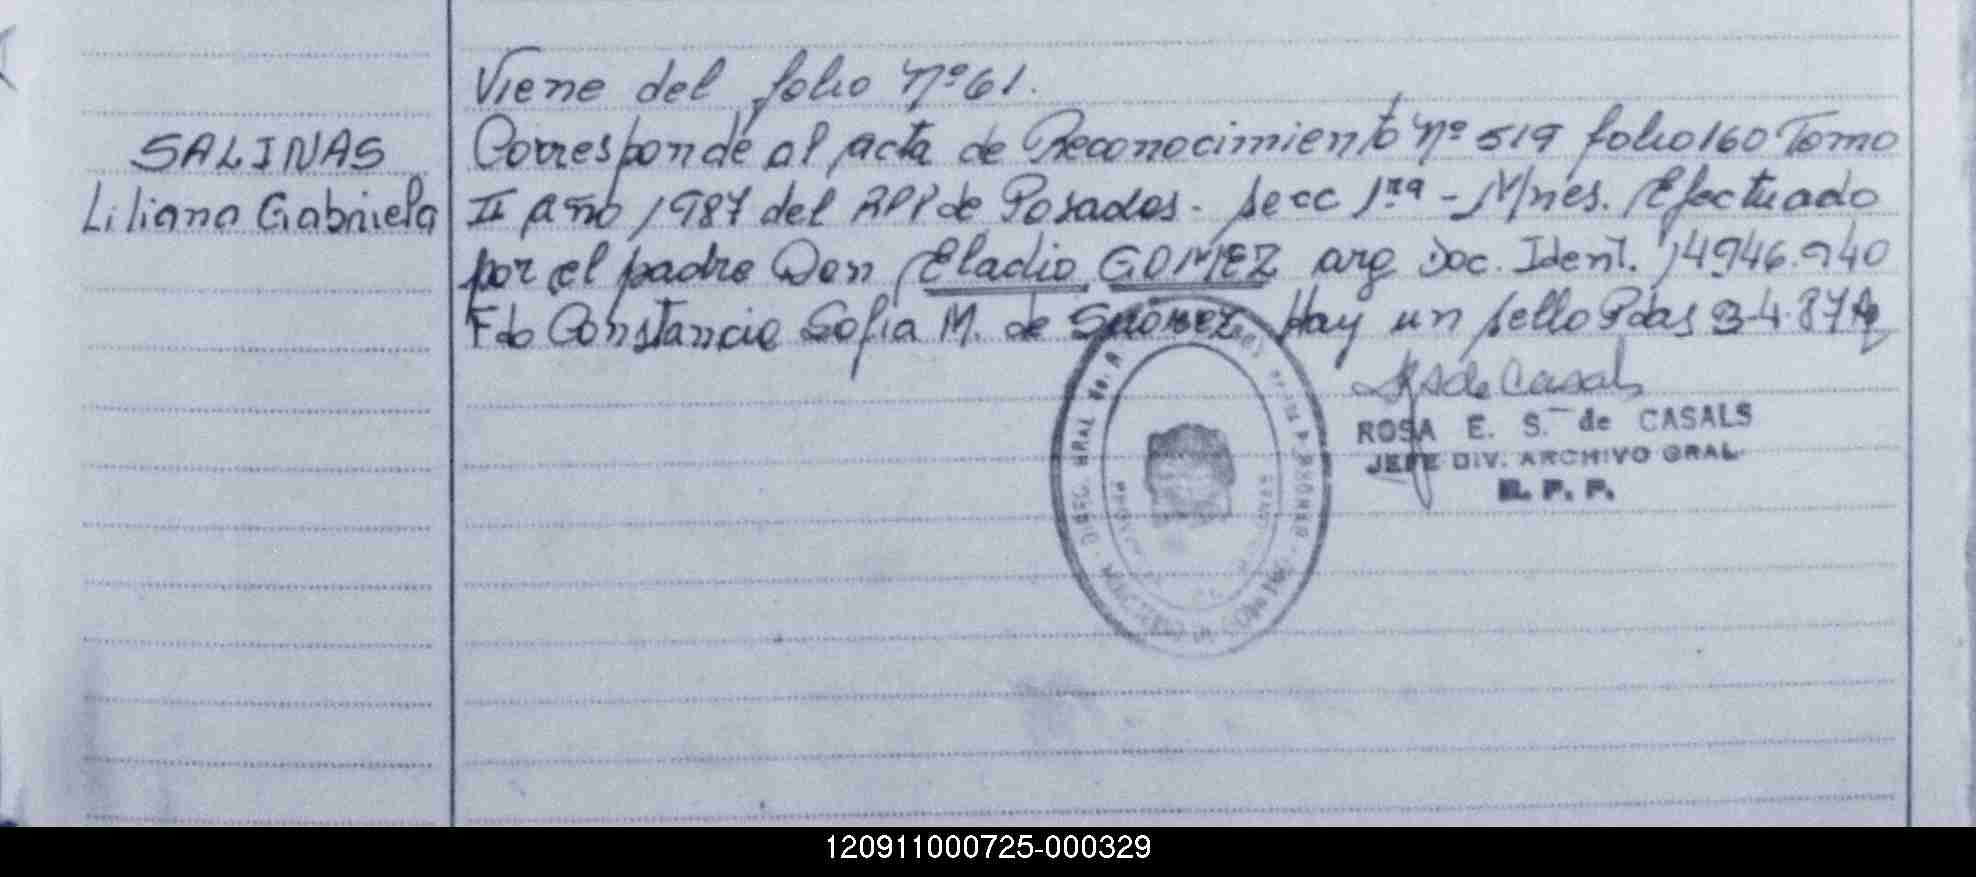 Viene del folio Nº 61.
SALINAS
Liliana Gabriela
Corresponde al acta de Reconocimiento Nº 519 folio 160 Tomo
II año 1987 del RPP de Posadas - secc 1ra - Mnes. Efectuado
por el padre Don Eladio GOMEZ arg Doc. Ident. 14946.940
Fdo Constancio Sofia M. de Hay un sello Pdas 3-4-87
ROSA E. S. de CASALS
JEFE DIV. ARCHIVO GRAL
R. P. P.
120911000725-000329